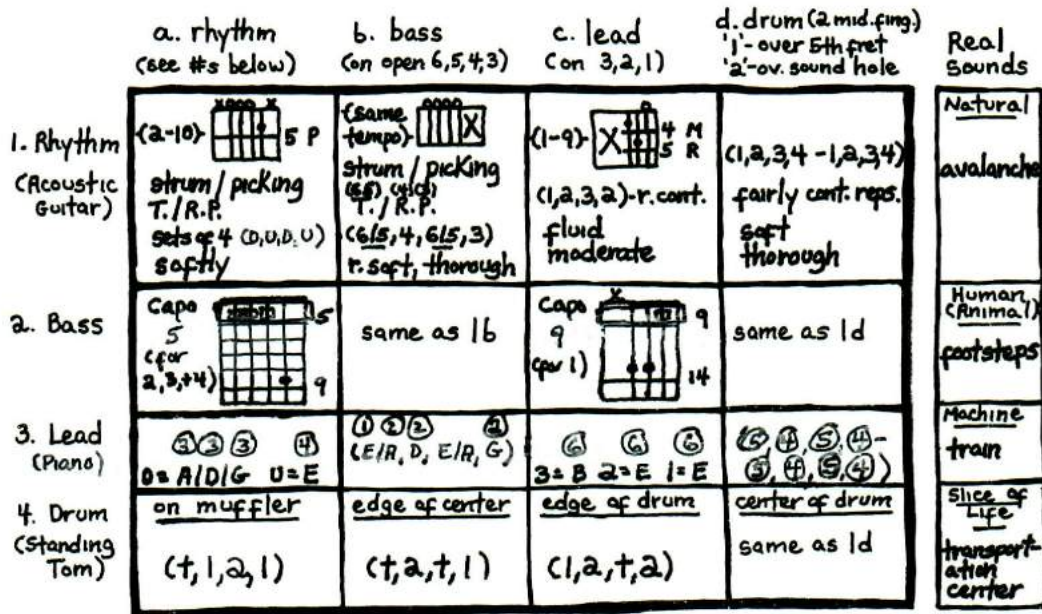 a. rhythm
(see #s below)
b. bass
(on open 6,5,4,3)
c. lead
(on 3,2,1)
d. drum (2 mid. fing.)
'1'-over 5th fret
'2'-ov. sound hole
Real
Sounds
1. Rhythm
(Acoustic
Guitar)
x000 x
(2-10) 5 P
strum/picking
T./R.P.
sets of 4 (D,U,D,U)
softly
0000
(same
tempo) X
strum/picking
T./R.P.
(6/5, 4, 6/5, 3)
r. soft, thorough
0
(1-9) X 4 M
5 R
(1,2,3,2)-r. cont.
fluid
moderate
(1,2,3,4-1,2,3,4)
fairly cont. reps.
soft
thorough
Natural
avalanche
2. Bass
Capo
5
(for
2,3,+4)
5
9
same as 1b
Capo
9
(for 1)
x
9
14
same as 1d
Human
(Animal)
footsteps
3. Lead
(Piano)
3 3 3 4
D=A/D/G U=E
1 2 2 2
(E/A, D, E/A, G)
6 6 6
3=B 2=E 1=E
(5, 4, 5, 4-
5, 4, 5, 4)
Machine
train
4. Drum
(Standing
Tom)
on muffler
(t,1,2,1)
edge of center
(t,2,t,1)
edge of drum
(1,2,t,2)
center of drum
same as 1d
Slice of
Life
transport-
ation
center